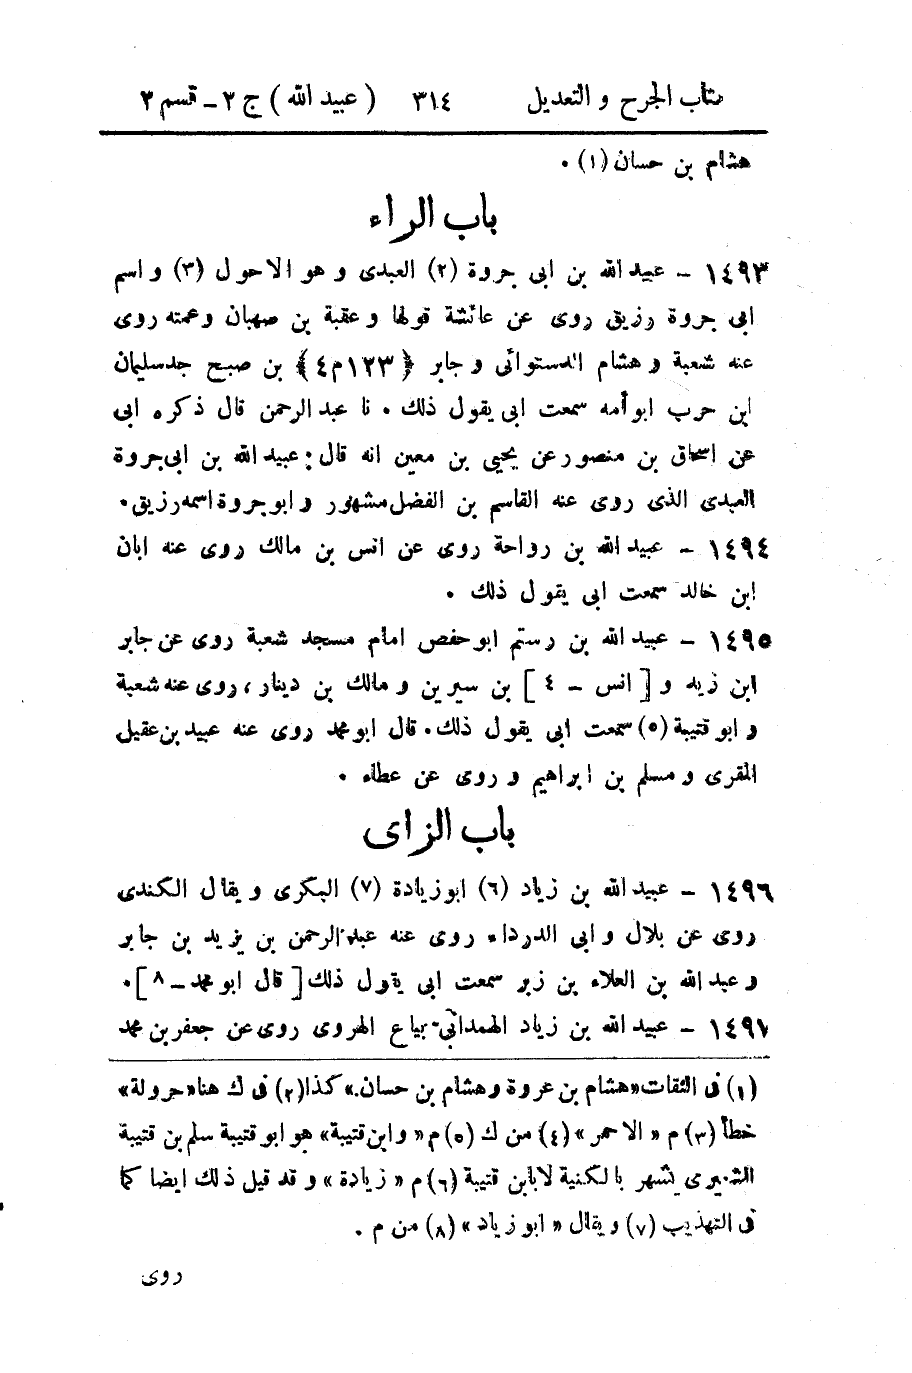 كتاب الجرح و التعديل ٣١٤ ( عبيد الله ) ج ٢ - قسم ٢
هشام بن حسان (١) .
باب الراء
١٤٩٣ - عبيد الله بن ابى جروة (٢) العبدى و هو الاحول (٣) و اسم
ابى جروة رزيق روى عن عائشة قولها و عقبة بن صهبان وعمته روى
عنه شعبة و هشام الدستوائى و جابر ﴿ ١٢٣م٤ ﴾ بن صبح جدسليمان
ابن حرب ابو أمه سمعت ابى يقول ذلك . نا عبد الرحمن قال ذكره ابى
عن اسحاق بن منصور عن يحيى بن معين انه قال : عبيد الله بن ابى جروة
العبدى الذى روى عنه القاسم بن الفضل مشهور و ابو جروة اسمه رزيق .
١٤٩٤ - عبيد الله بن رواحة روى عن انس بن مالك روى عنه ابان
ابن خالد سمعت ابى يقول ذلك .
١٤٩٥ - عبيد الله بن رستم ابو حفص امام مسجد شعبة روى عن جابر
ابن زيد و [ انس - ٤ ] بن سيرين و مالك بن دينار ، روى عنه شعبة
و ابو قتيبة (٥) سمعت ابى يقول ذلك . قال ابو محمد روى عنه عبيد بن عقيل
المقرى و مسلم بن ابراهيم و روى عن عطاء .
باب الزاى
١٤٩٦ - عبيد الله بن زياد (٦) ابو زيادة (٧) البكرى و يقال الكندى
روى عن بلال و ابى الدرداء روى عنه عبد الرحمن بن يزيد بن جابر
و عبد الله بن العلاء بن زبر سمعت ابى يقول ذلك [ قال ابو محمد - ٨ ] .
١٤٩٧ - عبيد الله بن زياد الهمدانى بياع الهروى روى عن جعفر بن محمد
(١) فى الثقات «هشام بن عروة وهشام بن حسان.» كذا (٢) فى ك هنا «حرولة»
خطأ (٣) م « الاحمر » (٤) من ك (٥) م « وابن قتيبة» هو ابو قتيبة سلم بن قتيبة
الشعيرى شهر بالكنية لابابن قتيبة (٦) م « زيادة » و قد قيل ذلك ايضا كما
فى التهذيب (٧) و يقال « ابو زياد » (٨) من م .
روى